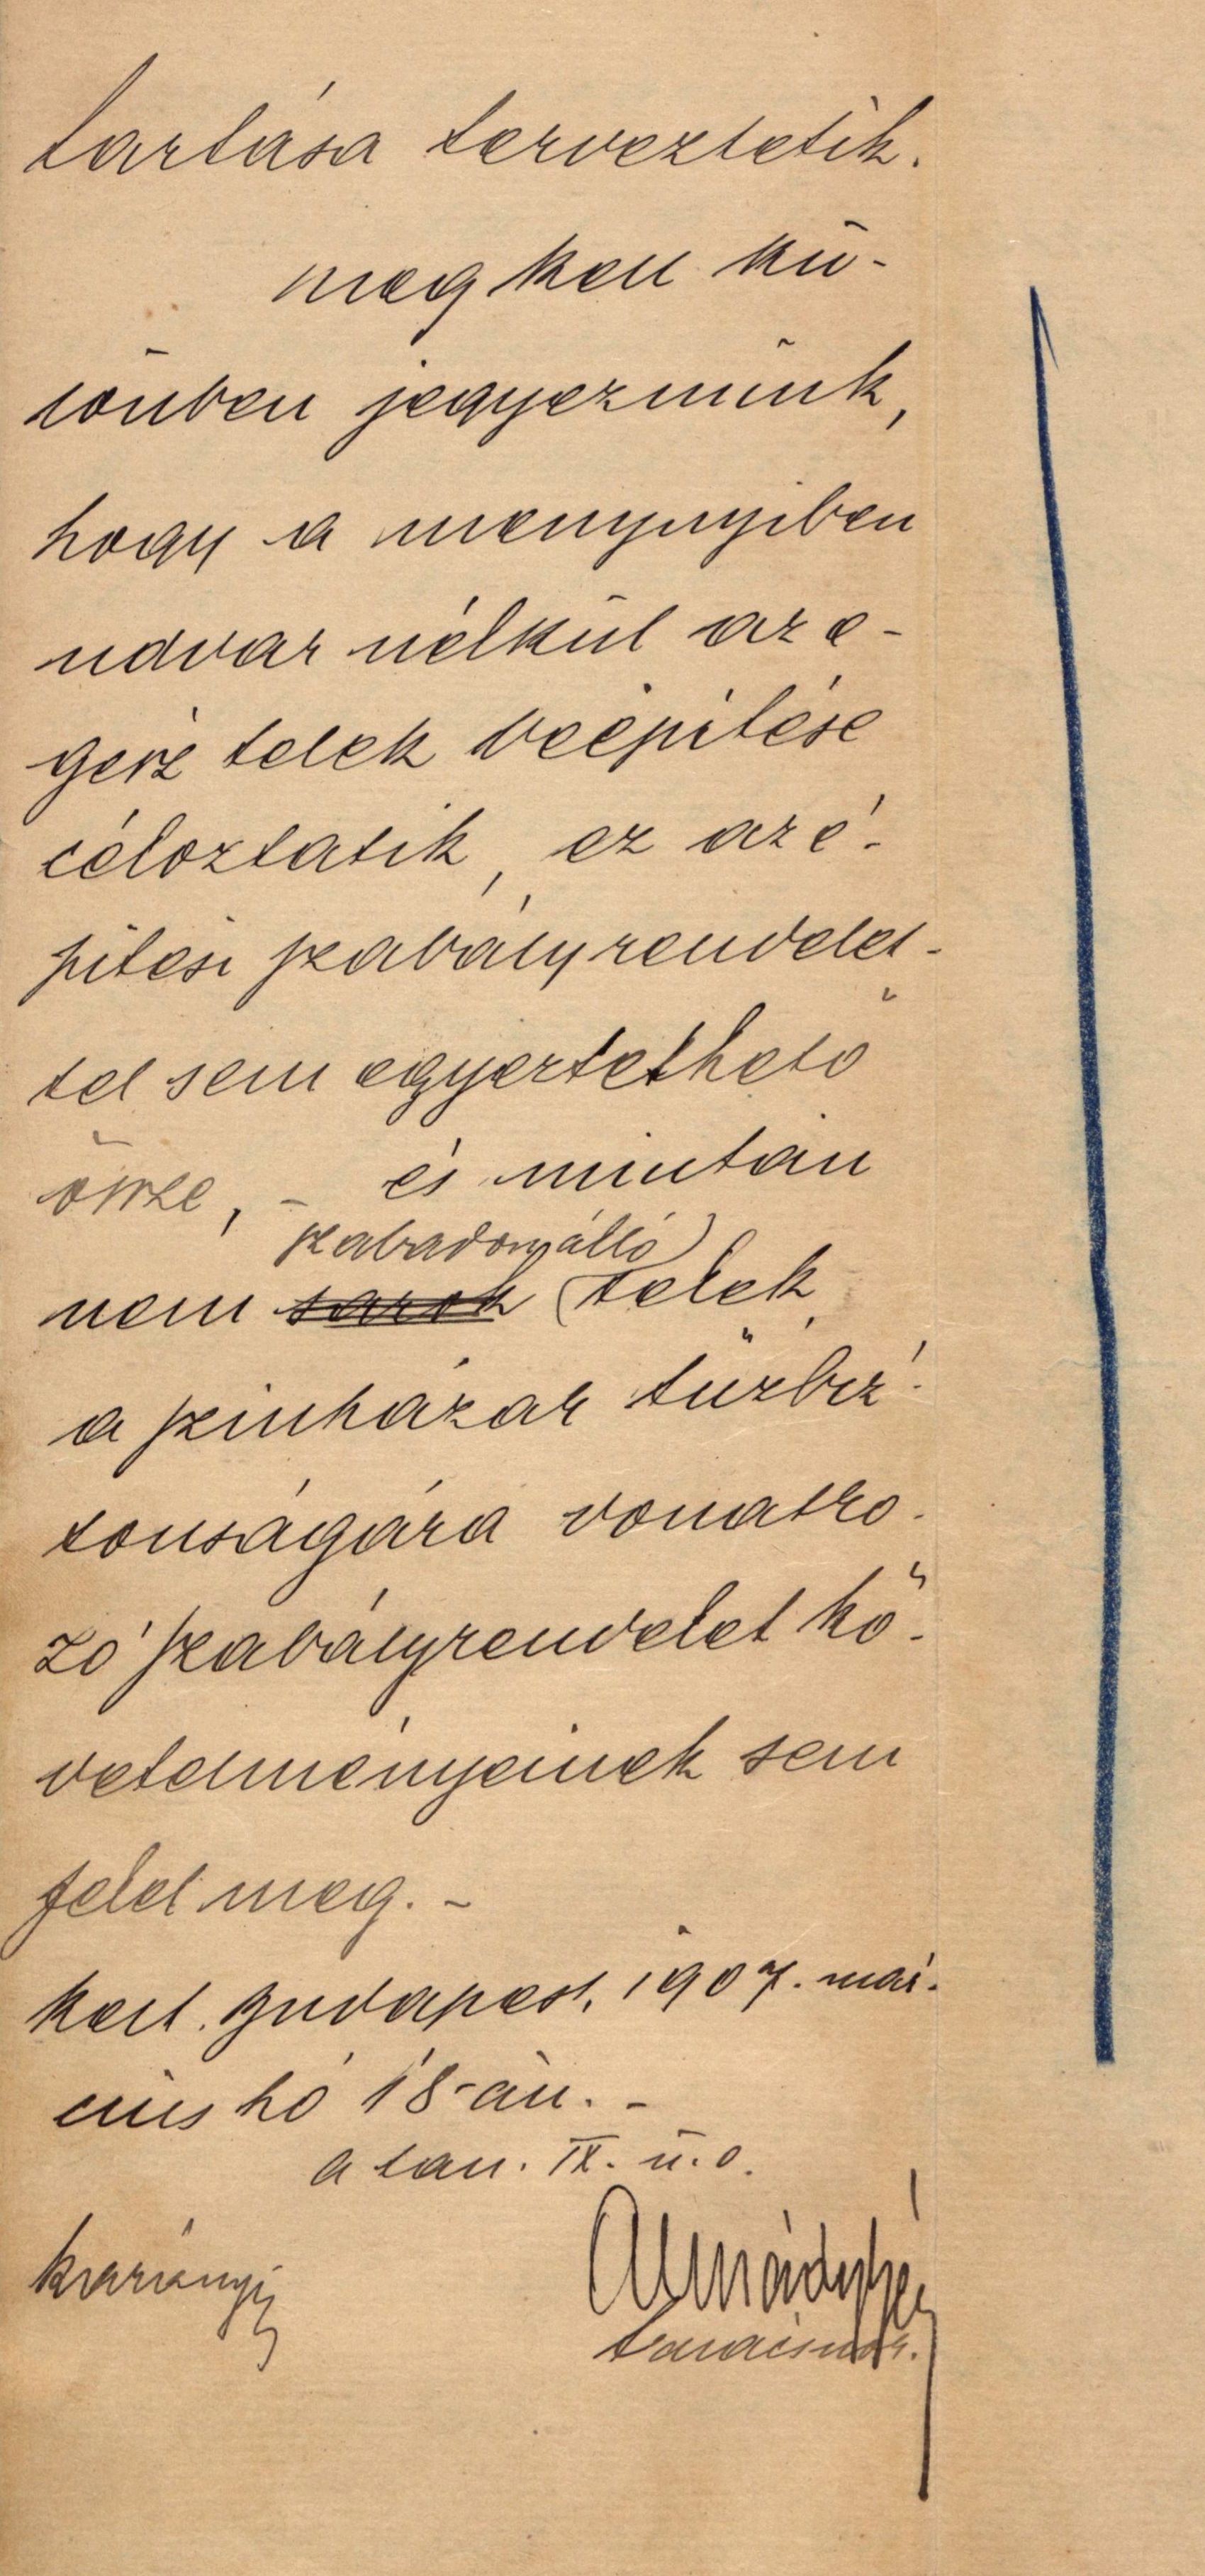 tartása terveztetik.
meg kell kü-
lönben jegyeznünk,
hogy a menynyiben
udvar nélkül az e-
gész telek beépitése
céloztatik, ez az é-
pitési szabályrendelet-
tel sem egyeztethető
össze, - és miután
szabadon álló
nem sarok (telek,
a szinházak tűzbiz-
tonságára vonatko-
zó szabályrendelet kö-
vetelményeinek sem
felel meg. -
kelt. Budapest, 1907. már-
cius hó 18-án. -
a tan. IX. ü. o.
tanácsnok.